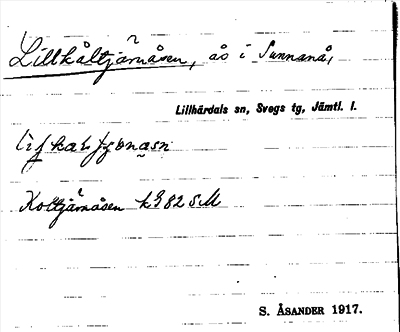 Lillkåltjärnåsen, ås i Sunnanå,
Lillhärdals sn, Svegs tg, Jämtl. l.
Koltjärnåsen k 982 SM
S. ÅSANDER 1917.